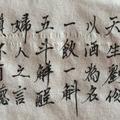 天生劉伶
以酒為名
一飲一斛
五斗解酲
婦人之言